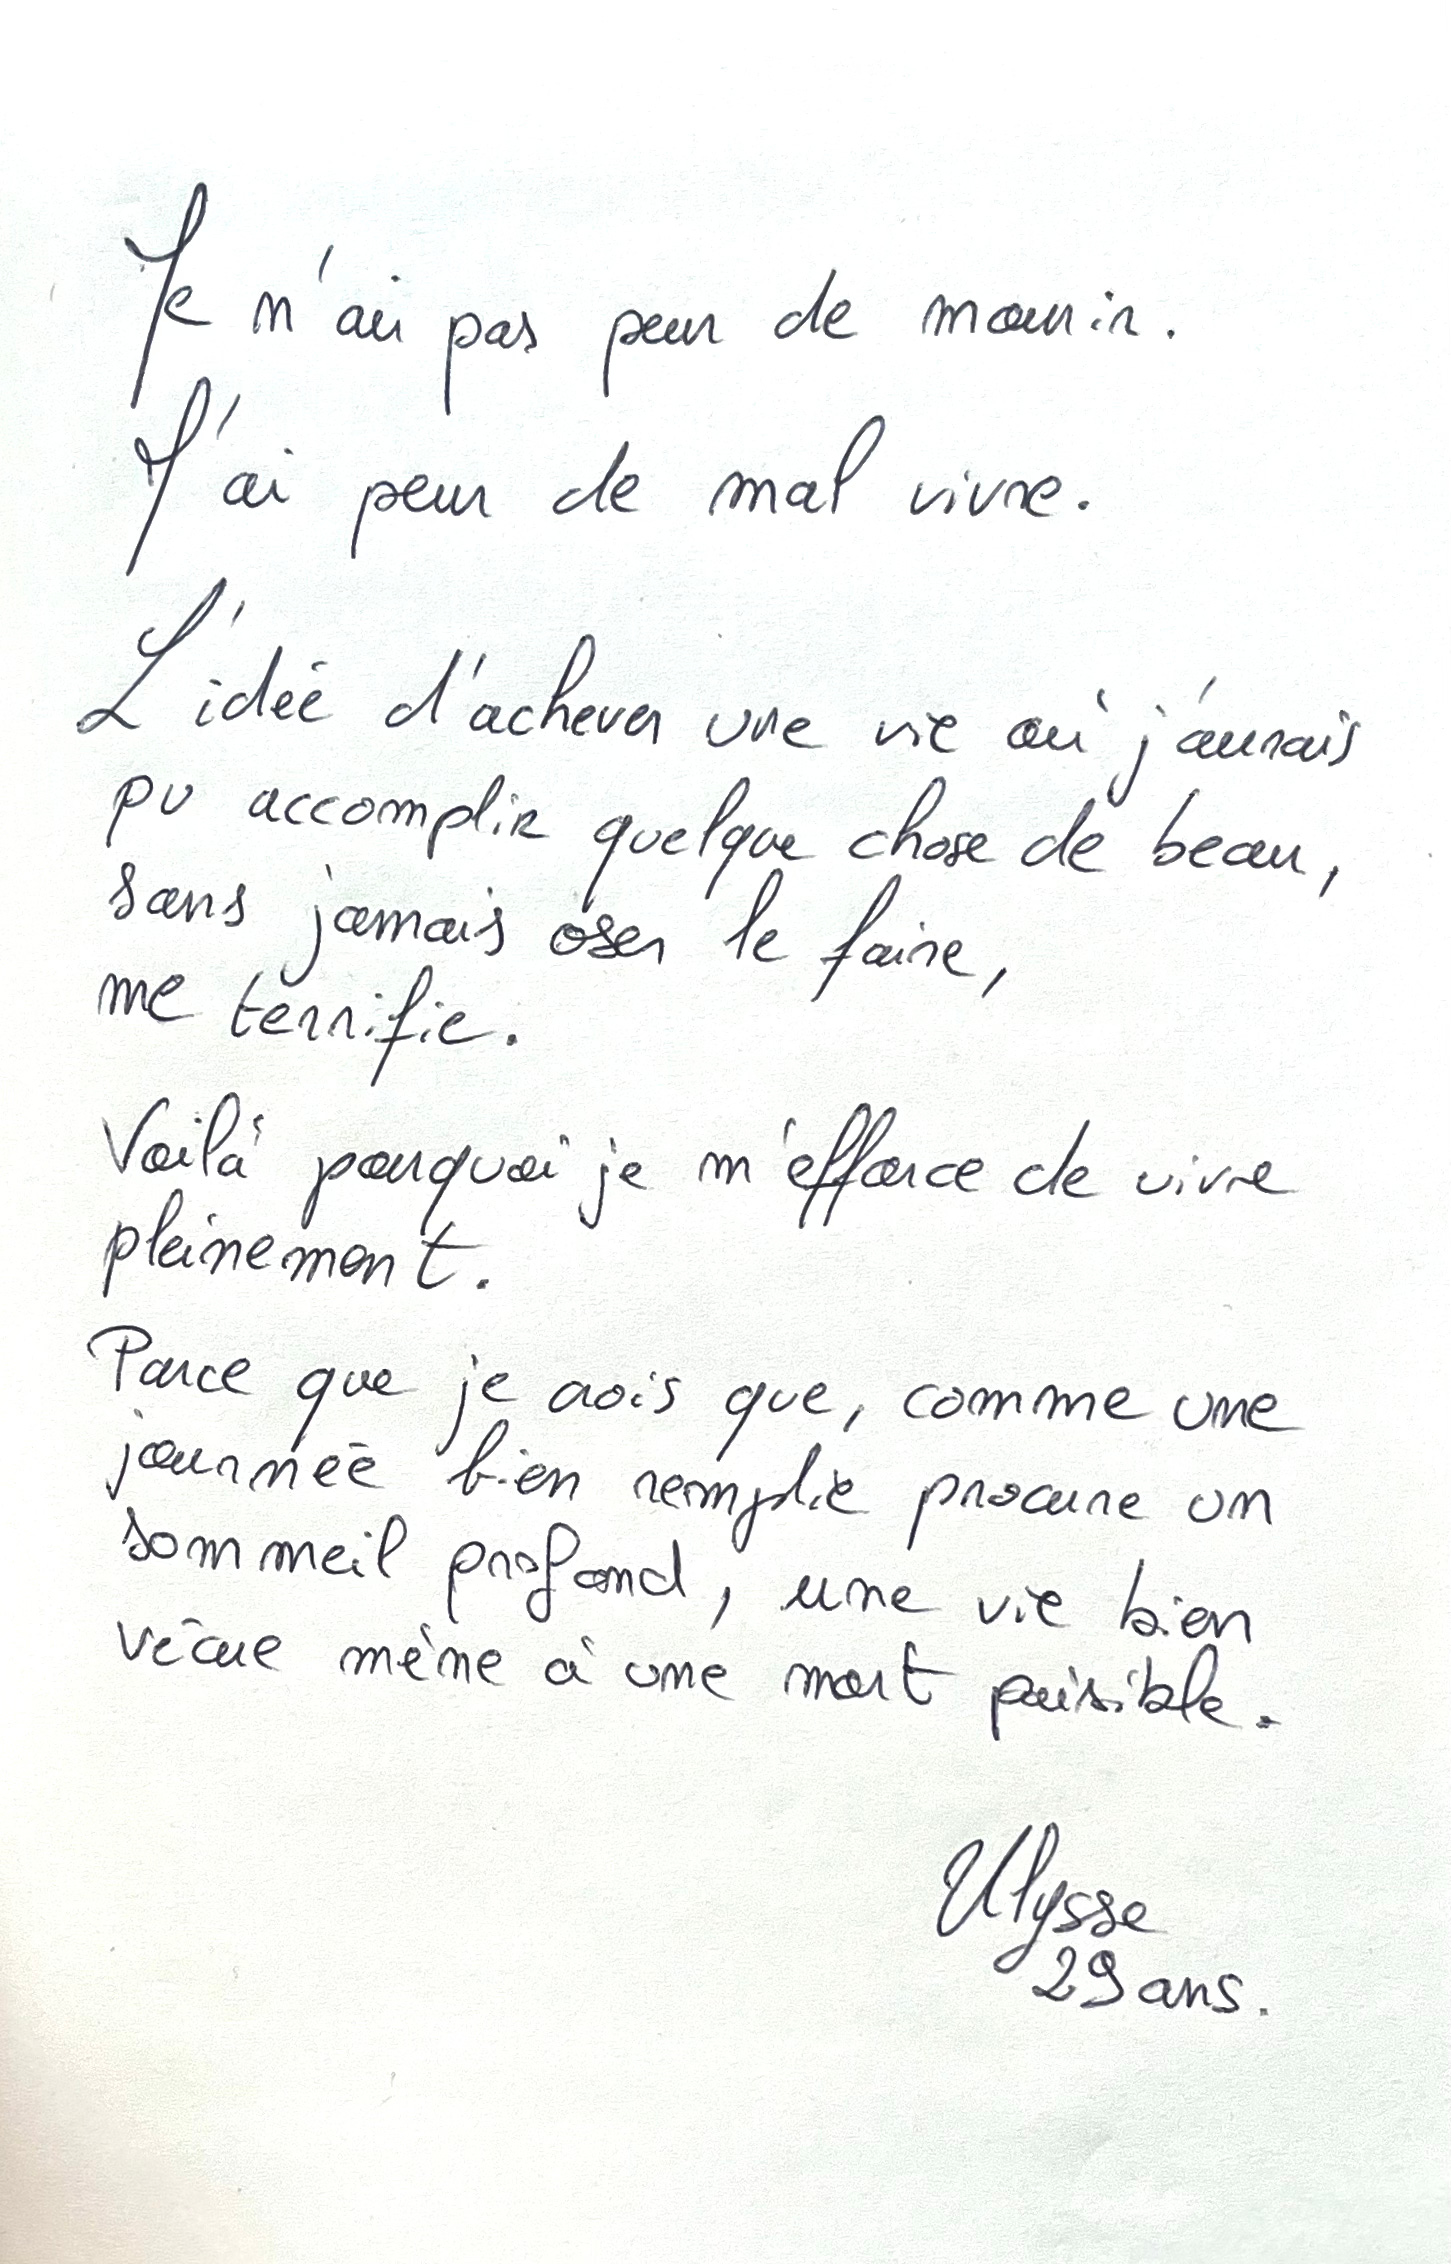 Je n'ai pas peur de mourir.
J'ai peur de mal vivre.
L'idée d'achever une vie où j'aurais
pu accomplir quelque chose de beau,
sans jamais oser le faire,
me terrifie.
Voilà pourquoi je m'efforce de vivre
pleinement.
Parce que je crois que, comme une
journée bien remplie procure un
sommeil profond, une vie bien
vécue mène à une mort paisible.
Ulysse
29 ans.